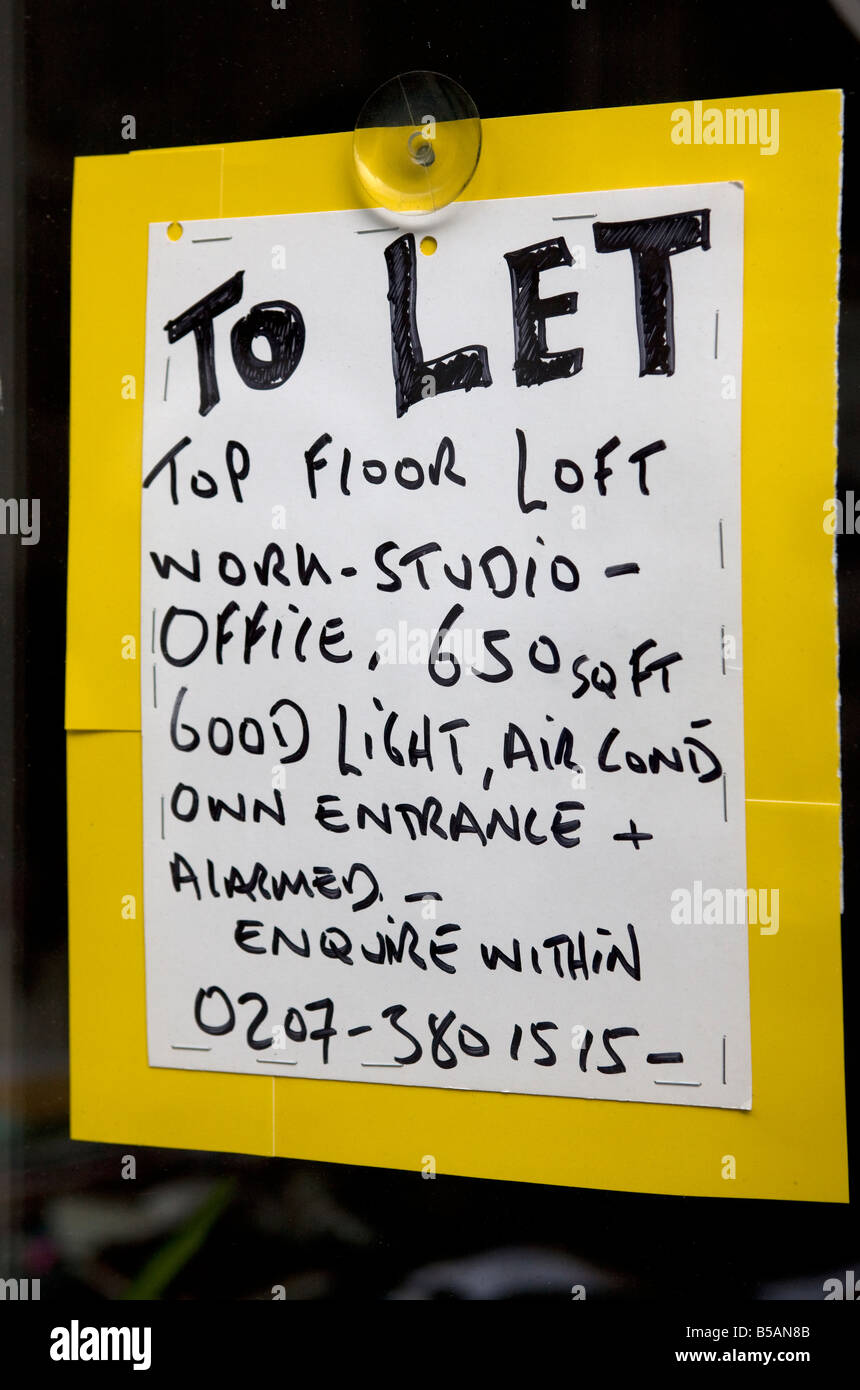 TO LET
TOP FLOOR LOFT
WORK-STUDIO -
OFFICE, 650 SQ FT
GOOD LIGHT, AIR COND
OWN ENTRANCE +
ALARMED. -
ENQUIRE WITHIN
0207-380 1515 -
alamy
a
alamy
alamy
a
a
alamy
Image ID: B5AN8B
www.alamy.com